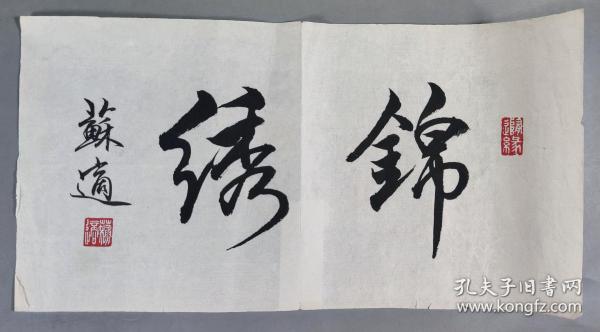 錦绣
蘇適
孔夫子旧书网
kongfz.com